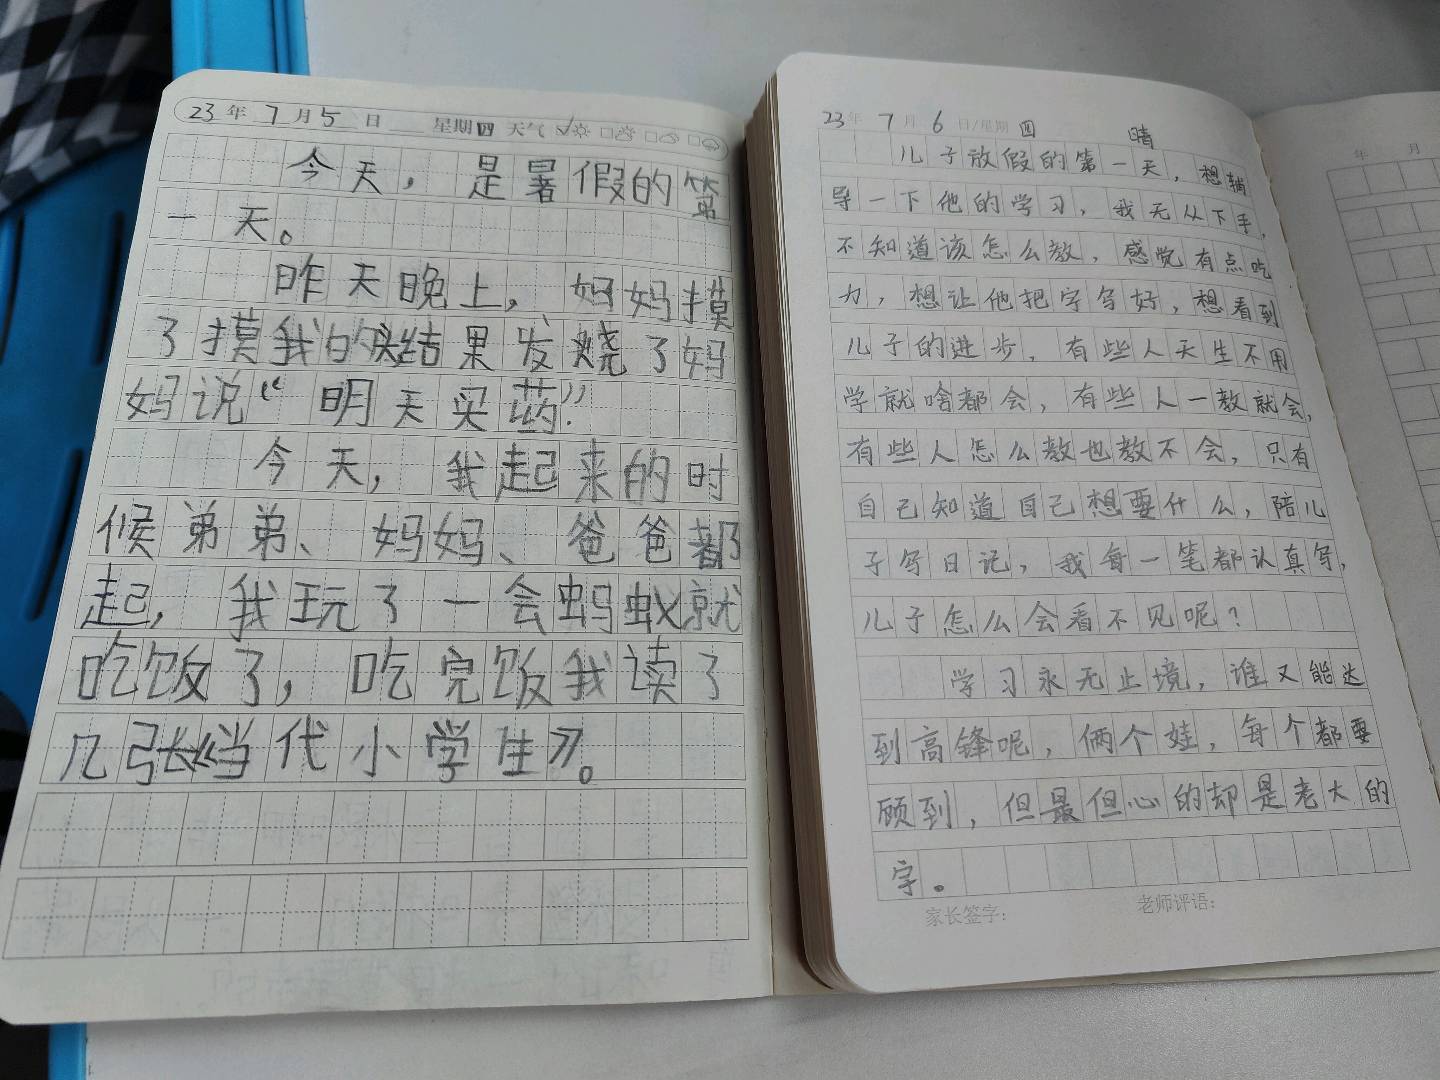 23年7月5日 星期四 天气
今天，是暑假的第
一天。
昨天晚上，妈妈摸
了摸我的头结果发烧了妈
妈说“明天买药”.
今天，我起来的时
候弟弟、妈妈、爸爸都
起，我玩了一会蚂蚁就
吃饭了，吃完饭我读了
几张《当代小学生》。
23年7月6日/星期四 晴
儿子放假的第一天，想辅
导一下他的学习，我无从下手，
不知道该怎么教，感觉有点吃
力，想让他把字写好，想看到
儿子的进步，有些人天生不用
学就啥都会，有些人一教就会，
有些人怎么教也教不会，只有
自己知道自己想要什么，陪儿
子写日记，我每一笔都认真写，
儿子怎么会看不见呢？
学习永无止境，谁又能达
到高锋呢，俩个娃，每个都要
顾到，但最但心的却是老大的
字。
家长签字：
老师评语：
年 月